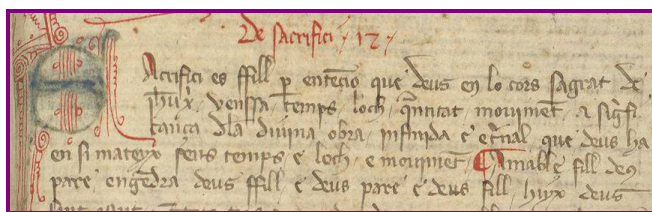 De sacrifici · 12 ·
Acrifici es ffill p entecio que deus en lo cors sagrat de
ihux venssa temps loch qntitat mouimet a signfi
cança dla diuina obra infinida e etnal que deus ha
en si mateyx sens temps e loch e mouimet Amable fill deus
pare engedra deus ffill e deus pare e deus fill hux deus